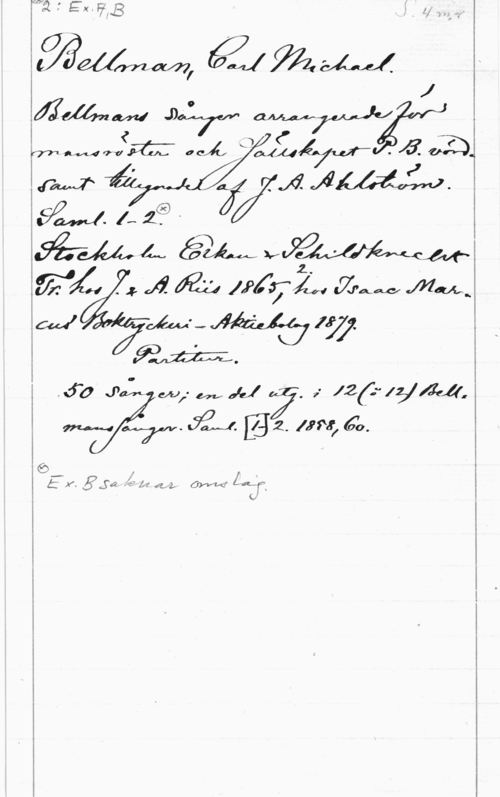 2: Ex. A, B
S. 4 m.r
Bellman, Carl Michael.
Bellmans sånger arrangerade för
mansröster och Sällskapet P. B. vörd.
samt tillegnade af J. A. Ahlström.
Saml. 1-2.⊗
Stockholm Elkan & Schildknecht
Tr. hos J. & A. Riis 1865, 2: hos Isaac Mar-
cus' Boktryckeri-Aktiebolag 1879.
Partitur.
50 sånger; en del utg. i 12(:12) Bell-
manssånger. Saml. [1-]2. 1858, 60.
⊗ Ex. B saknar omslag.